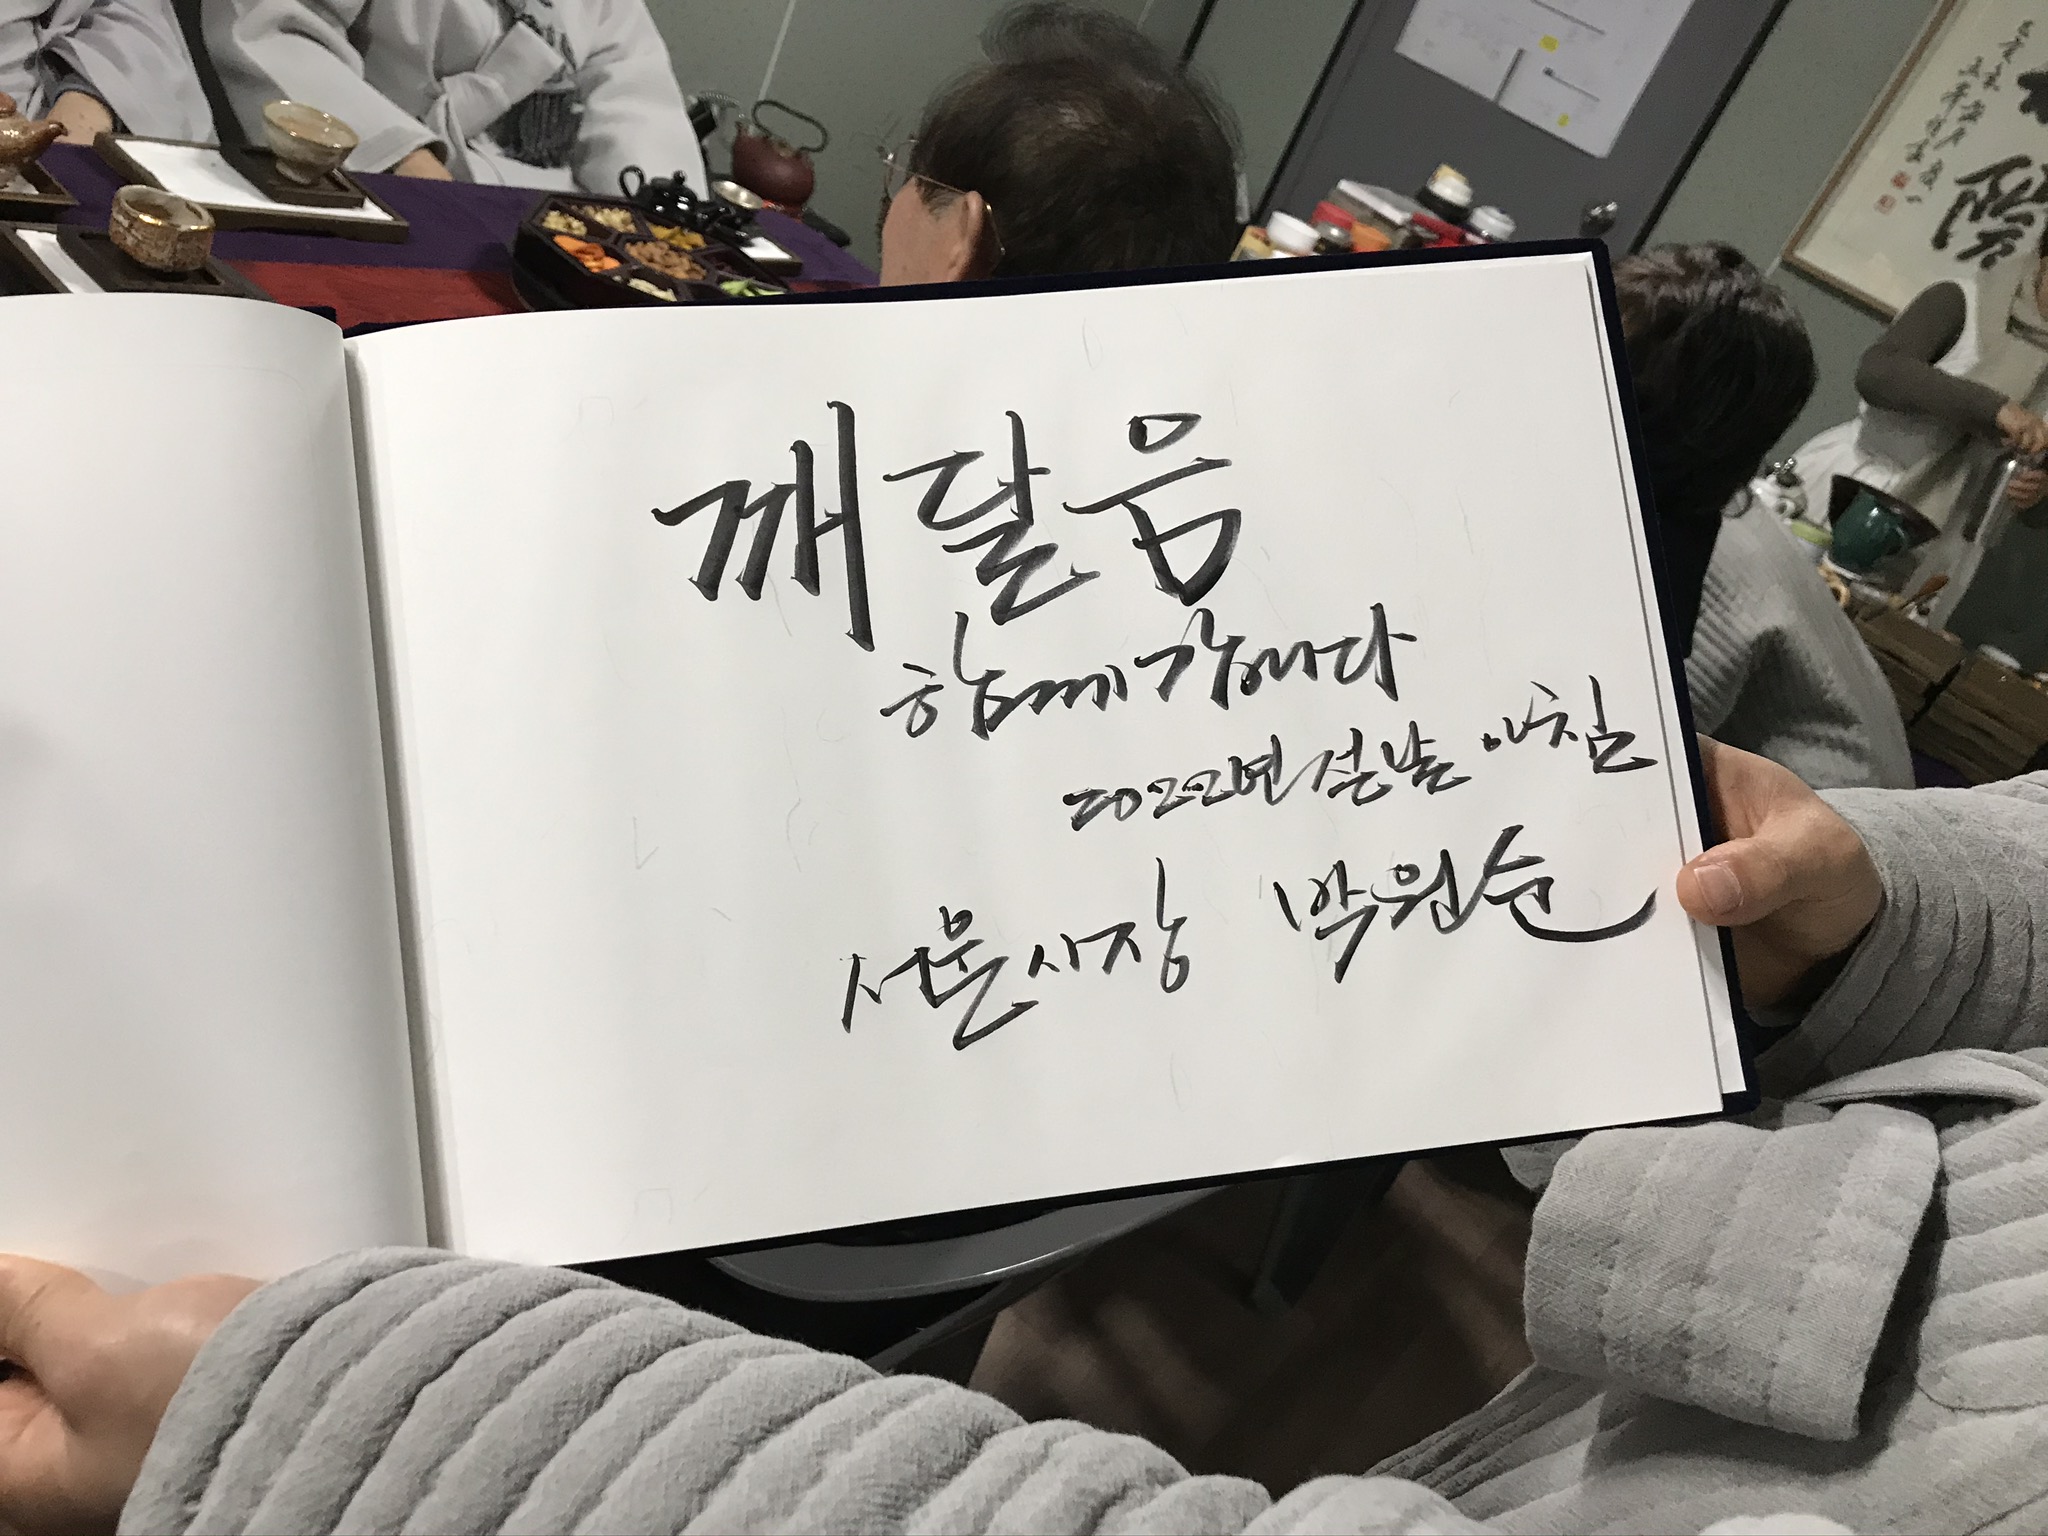 깨달음
함께 갑니다
2022년 설날 아침
서울시장 박원순